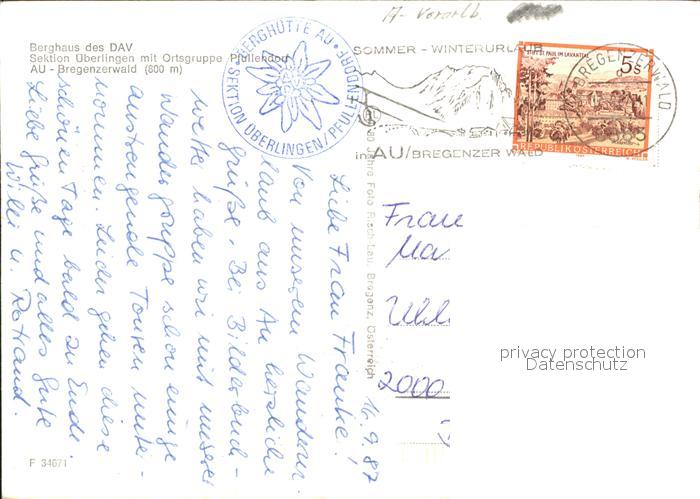 A-Vorarlb.
Berghaus des DAV
Sektion Überlingen mit Ortsgruppe Pfullendorf
AU - Bregenzerwald (800 m)
BERGHÜTTE AU
SEKTION ÜBERLINGEN/PFULLENDORF
SOMMER - WINTERURLAUB
in AU/BREGENZER WALD
BREGENZERWALD
STIFT ST. PAUL IM LAVANTTAL
5 S
REPUBLIK ÖSTERREICH
16.9.87
Liebe Frau Franke!
Von unserem Wander-
urlaub aus Au herzliche
Grüße. Bei Bilderbuch-
wetter haben wir mit unserer
Wandergruppe schon einige
anstrengende Touren unter-
nommen. Leider gehen diese
schönen Tage bald zu Ende.
Liebe Grüße und alles Gute
Willi u.
Jahre Foto Risch-Lau, Bregenz, Österreich
Frau
Ma
Uhl
2000
privacy protection
Datenschutz
F 34671